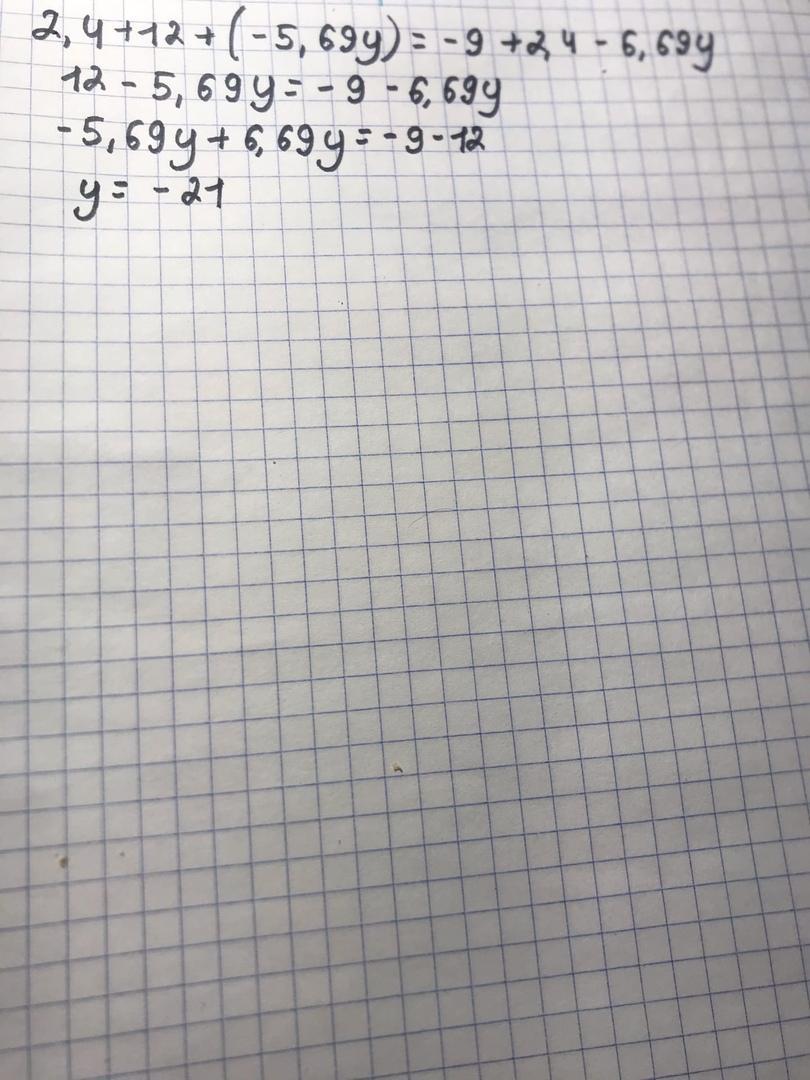 2,4+12+(-5,69y)=-9+2,4-6,69y
12-5,69y=-9-6,69y
-5,69y+6,69y=-9-12
y=-21